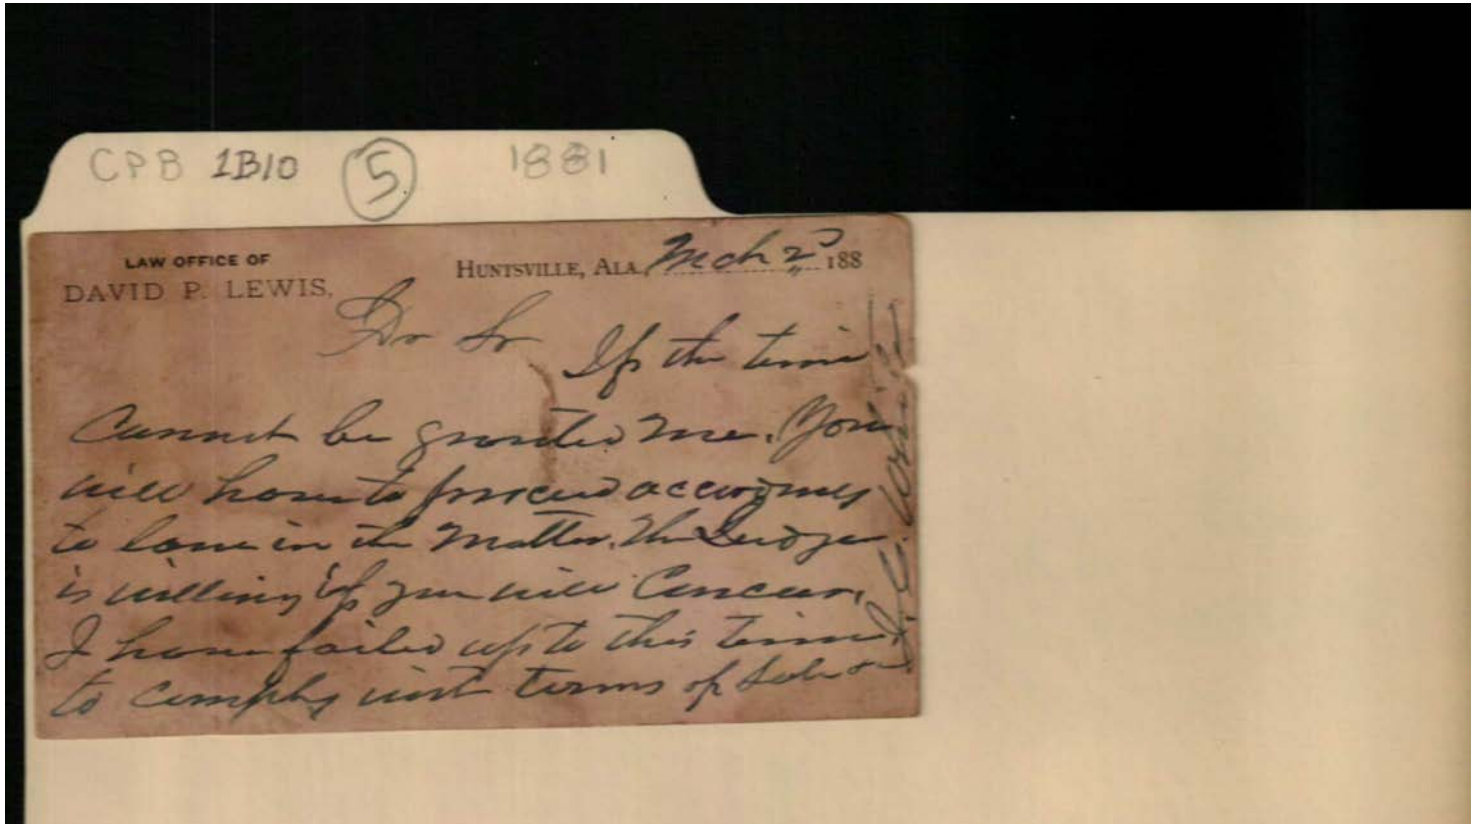 CPB 1B10 5 1881
LAW OFFICE OF
DAVID P. LEWIS,
HUNTSVILLE, ALA., Mch 2 188
Dr Sr
If the time
Cannot be granted me. You
will have to proceed accordingly
to law in the matter. The Judge
is willing if you will Concur,
I have failed up to this time
to comply with terms of Sale